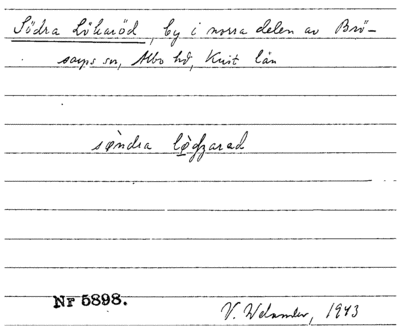 Södra Lökaröd, by i norra delen av Brö-
sarps sn, Albo hd, Krist län
søndra løgzarad
Nr 5898.
V. Welander, 1943